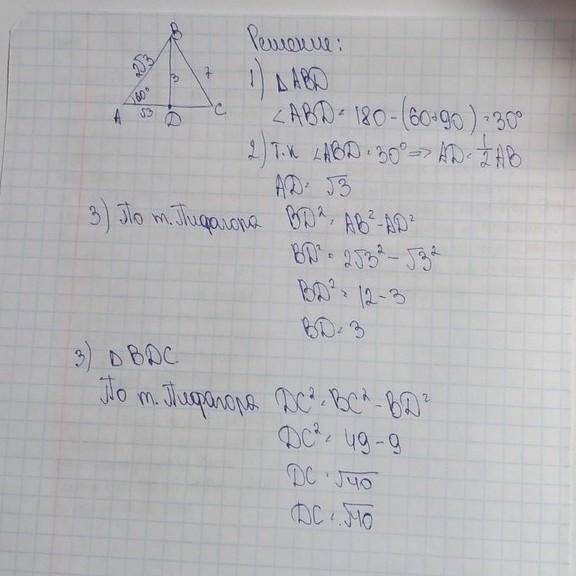 B
2√3
3
7
60°
A
√3
D
C
Решение:
1) △ABD
∠ABD = 180 - (60+90) = 30°
2) Т.к ∠ABD = 30° => AD = 1/2 AB
AD = √3
3) По т. Пифагора BD² = AB² - AD²
BD² = 2√3² - √3²
BD² = 12 - 3
BD = 3
3) △BDC
По т. Пифагора DC² = BC² - BD²
DC² = 49 - 9
DC = √40
DC = √40